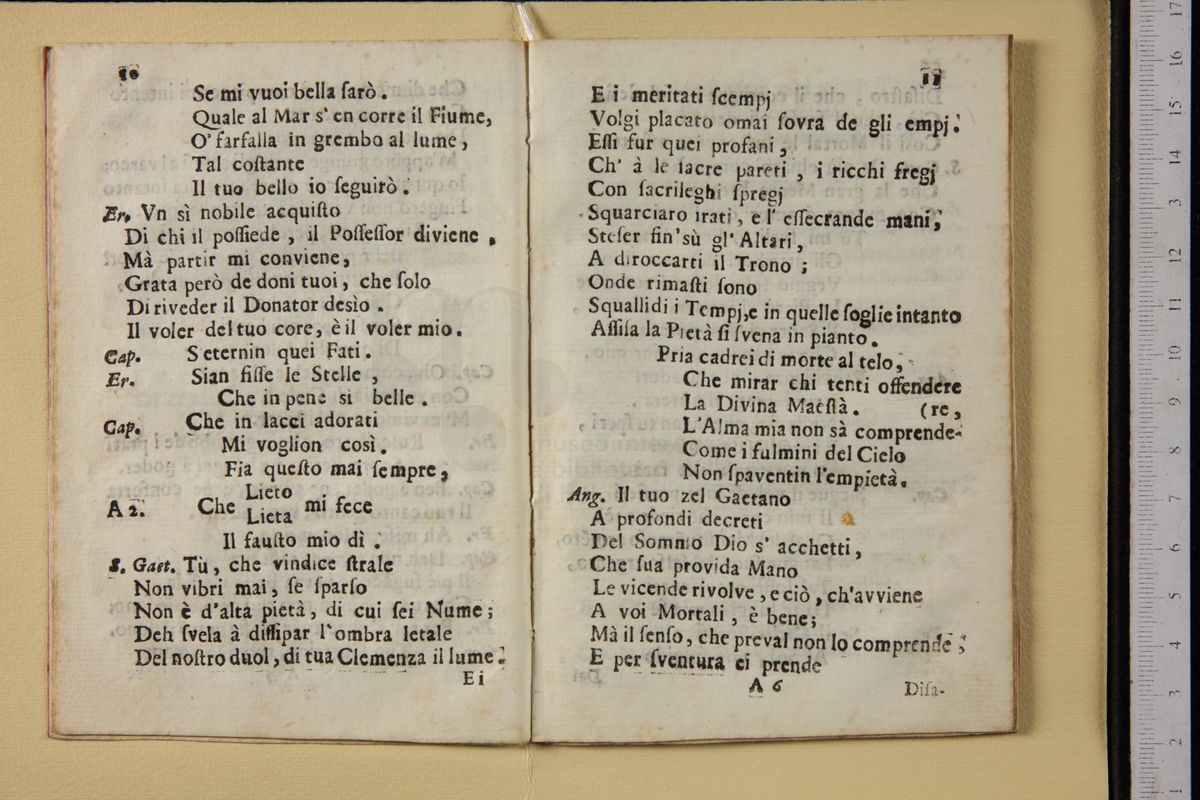 10
Se mi vuoi bella ſarò.
Quale al Mar s' en corre il Fiume,
O' farfalla in grembo al lume,
Tal coſtante
Il tuo bello io ſeguirò.
Er. Vn sì nobile acquiſto
Di chi il poſſiede, il Poſſeſſor diviene,
Mà partir mi conviene,
Grata però de doni tuoi, che ſolo
Di riveder il Donator desìo.
Il voler del tuo core, è il voler mio.
Cap. S'eternin quei Fati.
Er. Sian fiſſe le Stelle,
Che in pene si belle.
Cap. Che in lacci adorati
Mi voglion così.
Fia queſto mai ſempre,
A 2. Che Lieto Lieta mi fece
Il fauſto mio dì.
S. Gaet. Tù, che vindice ſtrale
Non vibri mai, ſe ſparſo
Non è d'alta pietà, di cui ſei Nume;
Deh ſvela à diſſipar l'ombra letale
Del noſtro duol, di tua Clemenza il lume.
Ei
11
E i meritati ſcempj
Volgi placato omai ſovra de gli empj.
Eſſi fur quei profani,
Ch' à le ſacre pareti, i ricchi fregj
Con ſacrileghi ſpregj
Squarciaro irati, e l' eſſecrande mani,
Steſer fin'sù gl' Altari,
A diroccarti il Trono;
Onde rimaſti ſono
Squallidi i Tempj, e in quelle ſoglie intanto
Aſſiſa la Pietà ſi ſvena in pianto.
Pria cadrei di morte al telo,
Che mirar chi tenti offendere
La Divina Maeſtà. (re,
L'Alma mia non sà comprende-
Come i fulmini del Cielo
Non ſpaventin l'empietà.
Ang. Il tuo zel Gaetano
A profondi decreti
Del Sommo Dio s' acchetti,
Che ſua provida Mano
Le vicende rivolve, e ciò, ch'avviene
A voi Mortali, è bene;
Mà il ſenſo, che preval non lo comprende;
E per ſventura ei prende
A 6
Diſa-
17
16
15
14
3
12
11
10
9
8
7
6
5
4
3
2
1